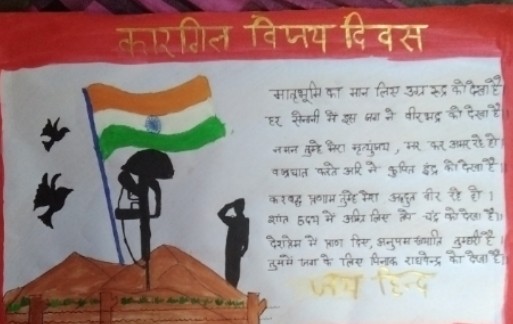 कारगिल विजय दिवस
मातृभूमि का मान लिए उग्र रुद्र को देखा है
हर सेनानी में इस जग ने वीरभद्र को देखा है।।
नमन तुम्हे मेरा मृत्युंजय, मर कर अमर रहे हो।
वज्रघात करते अरि ने कुपित इंद्र को देखा है।।
करबद्ध प्रणाम तुम्हे मेरा अद्भुत वीर रहे हो।
में अग्नि लिए को देखा है।।
देशप्रेम में प्राण दिए, अनुपम ख्याति तुम्हारी है।
तुममें जग के लिए पिनाक राघवेन्द्र को देखा है।।
जय हिन्द